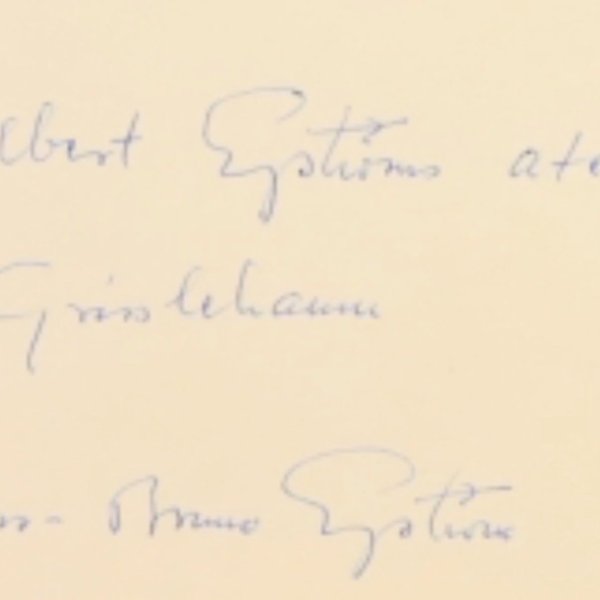 lbert Engströms ate
Grisslehamn
rs- Bruno Engström